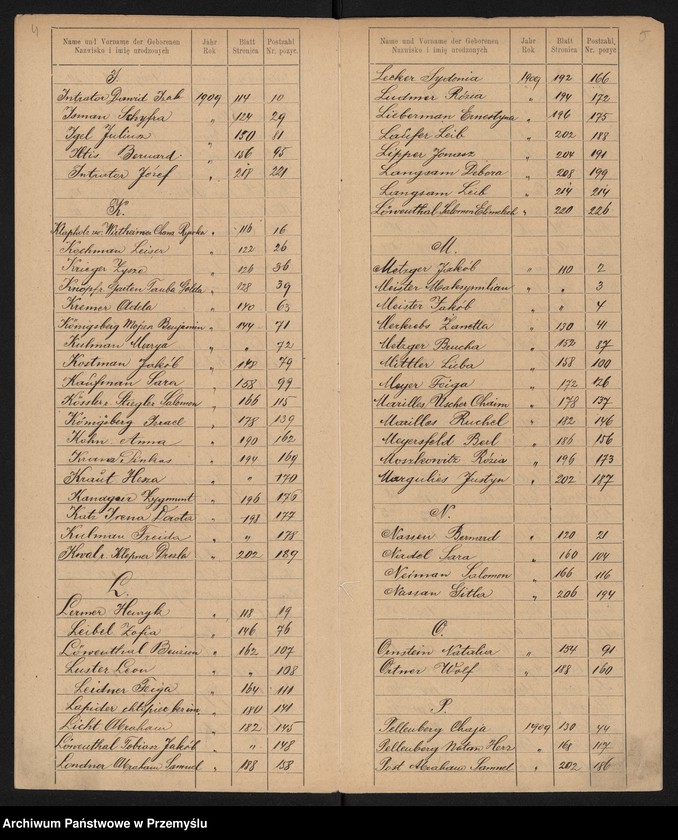 4
Name und Vorname der Geborenen Jahr Blatt Postzahl
Nazwisko i imię urodzonych Rok Stronica Nr. pozyc.
I
Intrater Dawid Izak 1909 114 10
Isman Schyfra " 124 29
Igel Juliusz " 150 81
Iltis Bernard " 156 95
Intrater Józef " 218 221
K.
Klapholz Wertheimer Chana Rywka " 116 16
Kochman Leiser " 122 26
Krieger " 126 36
Knopf Garten Tauba Golda " 128 39
Kremer Adela " 140 63
Königsberg Mojżesz Benjamin " 144 71
Kulman Marya " " 72
Kostman Jakób " 148 79
Kaufman Sara " 158 99
Kössler Stiegler Salomon " 166 115
Königsberg Israel " 178 139
Kohn Anna " 190 162
Pinkas " 194 169
Kraut " " 170
Zygmunt " 196 176
Katz Irena Dorota " 198 177
Kulman Freida " " 178
Klepner " 202 189
L.
Lermer Henryk " 118 19
Leibel Zofia " 146 76
Löwenthal " 162 107
Luster Leon " " 108
Leidner Feiga " 164 111
Lapider " 180 141
Licht Abraham " 182 145
Löwenthal Tobiasz Jakób " " 148
Londner Abraham Samuel " 188 158
5
Name und Vorname der Geborenen Jahr Blatt Postzahl
Nazwisko i imię urodzonych Rok Stronica Nr. pozyc.
Lecker Sydonia 1909 192 166
Ludmer Rózia " 194 172
Lieberman Ernestyna " 196 175
Laufer Leib " 202 188
Lipper Jonasz " 204 191
Langsam Debora " 208 199
Langsam Leib " 214 214
Löwenthal Salomon Elimelech " 220 226
M.
Metzger Jakób " 110 2
Meister Maksymilian " " 3
Meister Jakób " " 4
Żanetta " 130 41
Metzger Brucha " 152 87
Mittler Lieba " 158 100
Mayer Feiga " 172 126
Marilles Ascher Chaim " 178 137
Marilles Ruchel " 182 146
Meyersfeld Berl " 186 156
Moszkowitz Rózia " 196 173
Margulies Justyn " 202 187
N.
Nassen Bernard " 120 21
Nadel Sara " 160 104
Neiman Salomon " 166 116
Nassan Gitler " 206 194
O.
Ornstein Natalia " 154 91
Ortner Wolf " 188 160
P.
Pellenberg Chaja 1909 130 44
Pellenberg Natan Herz " 168 117
Post Abraham Samuel " 202 186
Archiwum Państwowe w Przemyślu